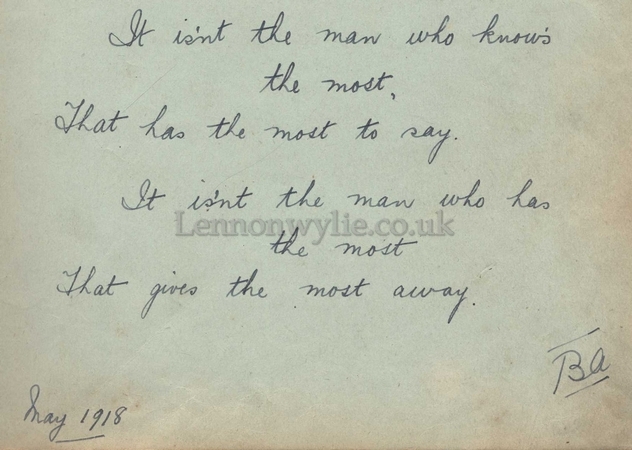 It is'nt the man who know's
the most,
That has the most to say.
It is'nt the man who has
Lennonwylie.co.uk
the most
That gives the most away.
BA
May 1918